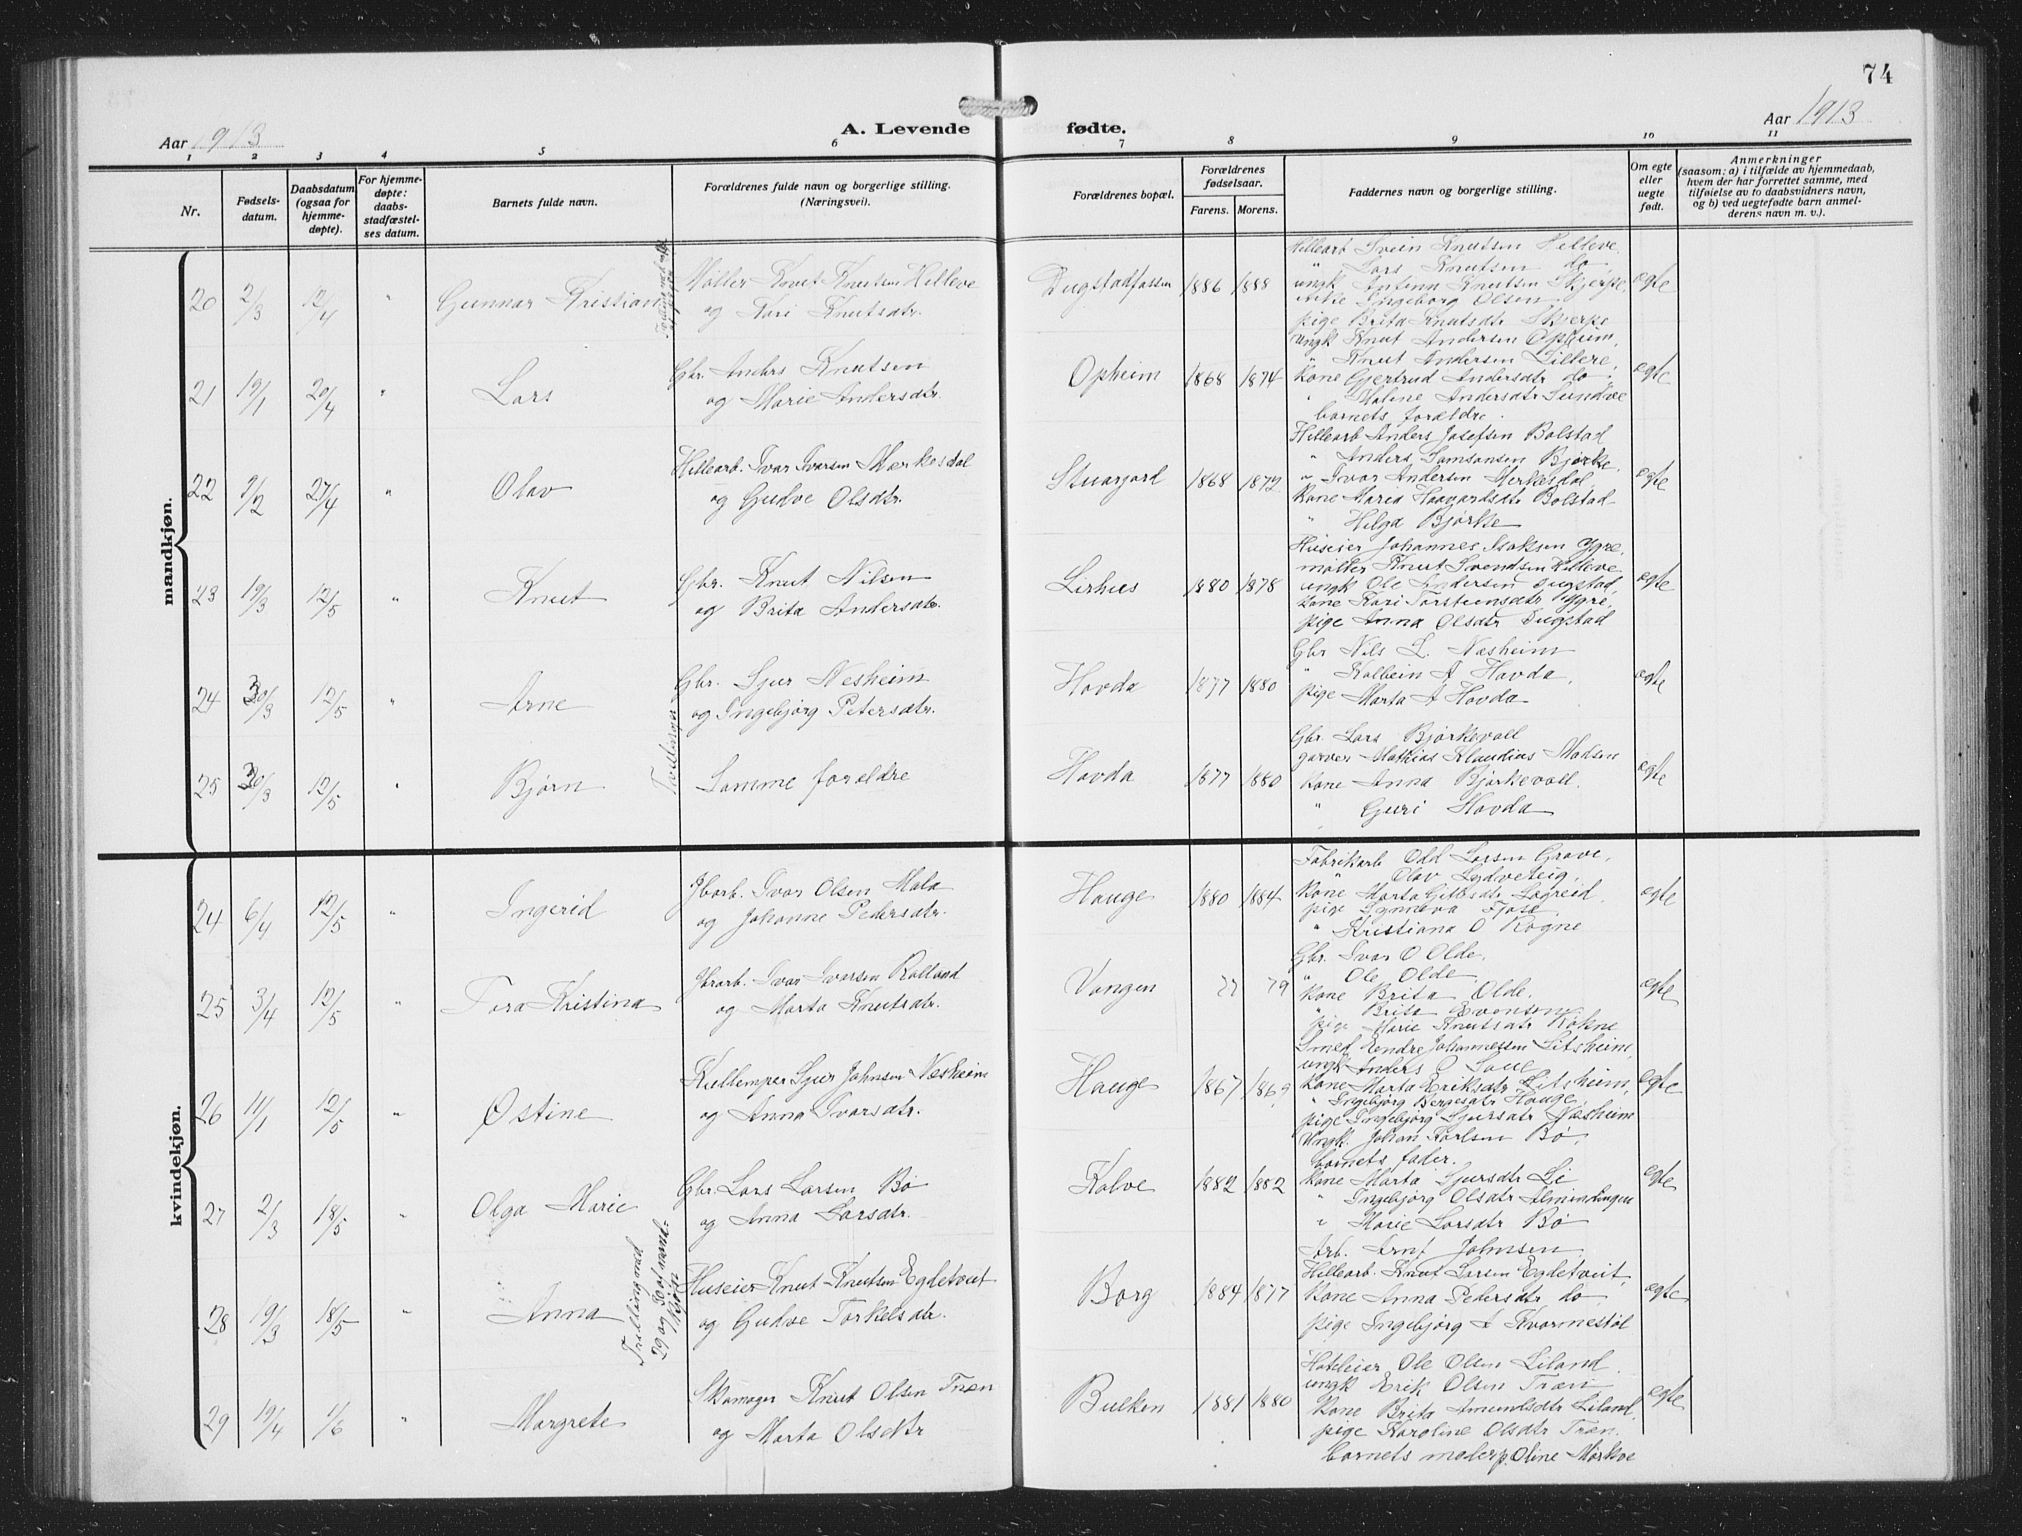 74
Aar 1913
A. Levende fødte.
Aar 1913
1 2 3 4 5 6 7 8 9 10 11
Nr.
Fødsels-
datum.
Daabsdatum
(ogsaa for
hjemme-
døpte).
For hjemme-
døpte:
daabs-
stadfæstel-
ses datum.
Barnets fulde navn.
Forældrenes fulde navn og borgerlige stilling.
(Næringsvei).
Forældrenes bopæl.
Forældrenes
fødselsaar.
Farens. Morens.
Faddernes navn og borgerlige stilling.
Om egte
eller
uegte
født.
Anmerkninger
(saasom: a) i tilfælde av hjemmedaab,
hvem der har forrettet samme, med
tilføielse av to daabsvidners navn,
og b) ved uegtefødte barn anmel-
derens navn m. v.).
mandkjøn.
20 2/3 12/4 " Gunnar Kristian
Møller Knut Knutsen Helleve
og Kari Knutsdtr.
Dugstadfossen 1886 1888
Hillearb Svein Knutsen Helleve
" Lars Knutsen do
ungk Knutsen Skjerpe,
enke Ingeborg Olsen
pige Brita Knutsdtr Skjerpe
egte
21 19/1 20/4 " Lars
Gbr. Anders Knutsen
og Marie Andersdtr.
Opheim 1868 1874
ungk Knut Andersen Opheim,
" Knut Andersen Lillere,
kone Gjertrud Andersdtr do,
" Malene Andersdtr Sundve
barnets forældre.
egte
22 9/2 27/4 " Olav
Hillearb. Ivar Ivarsen Mærkesdal
og Gudve Olsdtr.
1868 1872
Hillearb Anders Josefsen Bolstad
" Anders Samsonsen Bjørke,
" Ivar Andersen Merkesdal,
kone Maria Haavardsdtr Bolstad
" Helga Bjørke
egte
23 19/3 12/5 " Knut
Gbr. Knut Nilsen
og Brita Andersdtr.
Lirhus 1880 1878
Huseier Johannes Isaksen Ygre,
møller Knut Svendsen Helleve,
ungk Ole Andersen Dugstad,
kone Kari Torsteinsdtr Ygre,
pige Anna Olsdtr Dugstad
egte
24 30/3 12/5 " Arne
Gbr. Sjur Nesheim
og Ingebjørg Petersdtr.
Hovda 1877 1880
Gbr Nils L. Næsheim
" Kolbein A Hovda,
pige Marta A Hovda
egte
Tvillinger
25 30/3 12/5 " Bjørn
Samme forældre
Hovda 1877 1880
Gbr. Lars Bjørkevoll
garver Mathias Klaudius Madsen
kone Anna Bjørkevoll,
" Guri Hovda
egte
kvindekjøn.
24 6/4 12/5 " Ingerid
Jbarb. Ivar Olsen Mala
og Johanne Pedersdtr.
Hauge 1880 1884
Fabrikarb Odd Larsen Grove,
" Olav Lydveteig,
kone Marta Løgreid,
pige Synneva Fjose
" Kristiana O Rogne
egte
25 3/4 12/5 " Tora Kristina
Jbarb. Ivar Ivarsen Rolland
og Marta Knutsdtr.
Vangen 77 79
Gbr. Ivar O Olde,
" Ole Olde
kone Brita Olde,
" Brita Evensen
pige Marie Knutsdtr Røkne
egte
26 11/1 12/5 " Østine
Sjur Johnsen Næsheim
og Anna Ivarsdtr.
Hauge 1867 1869
Smed Endre Johannessen Litsheim,
ungk Anders O Saue
kone Marta Eriksdtr Litsheim,
" Ingebjørg Bergesdtr Hauge,
pige Ingebjørg Sjursdtr Næsheim
egte
27 2/3 18/5 " Olga Marie
Gbr. Lars Larsen Bø
og Anna Larsdtr.
Kolve 1882 1882
Ungk. Johan Karlsen Bø,
barnets fader.
kone Marta Sjursdtr Li
" Ingebjørg Olsdtr Almindingen
" Marie Larsdtr Bø
egte
28 19/3 18/5 " Anna
Trilling med
29 og 30 af mand-
kjøn
Huseier Knut Knutsen Egdetveit
og Gudve Torkelsdtr.
Borg 1884 1877
Arb. Arnf Johnsen
Hillearb. Knut Larsen Egdetveit,
kone Anna Pedersdtr do,
pige Ingebjørg A Kvarmestøl
egte
29 19/4 1/6 " Margrete
Skomager Knut Olsen Træn
og Marta Olsdtr
Bulken 1881 1880
Hoteleier Ole Olsen Liland
ungk Erik Olsen Træn
kone Brita Amundsdtr Liland,
pige Karoline Olsdtr Træn,
barnets moder, p. Oline Mørkve
egte